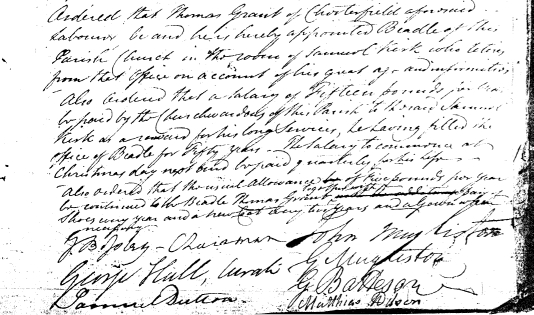 Ordered that Thomas Grant of Chesterfield aforesaid
Labourer be and he is hereby appointed Beadle of this
Parish Church in the room of Samuel Kirk who retires
from that Office on account of his great age and infirmities
Also ordered that a salary of Fifteen pounds per
be paid by the Churchwardens of this Parish to the said Samuel
Kirk as a reward for his long Services, he having filled the
office of Beadle for Fifty years - The Salary to commence at
Christmas day next and be paid quarterly for his life
Also ordered that the usual Allowance of Five pounds per year
be continued to the Beadle Thomas Grant together with
Shoes every year and a new every two years and a gown when
necessary
Chairman
John
George Hall, Curate
G
Samuel Dutton
G
Matthias